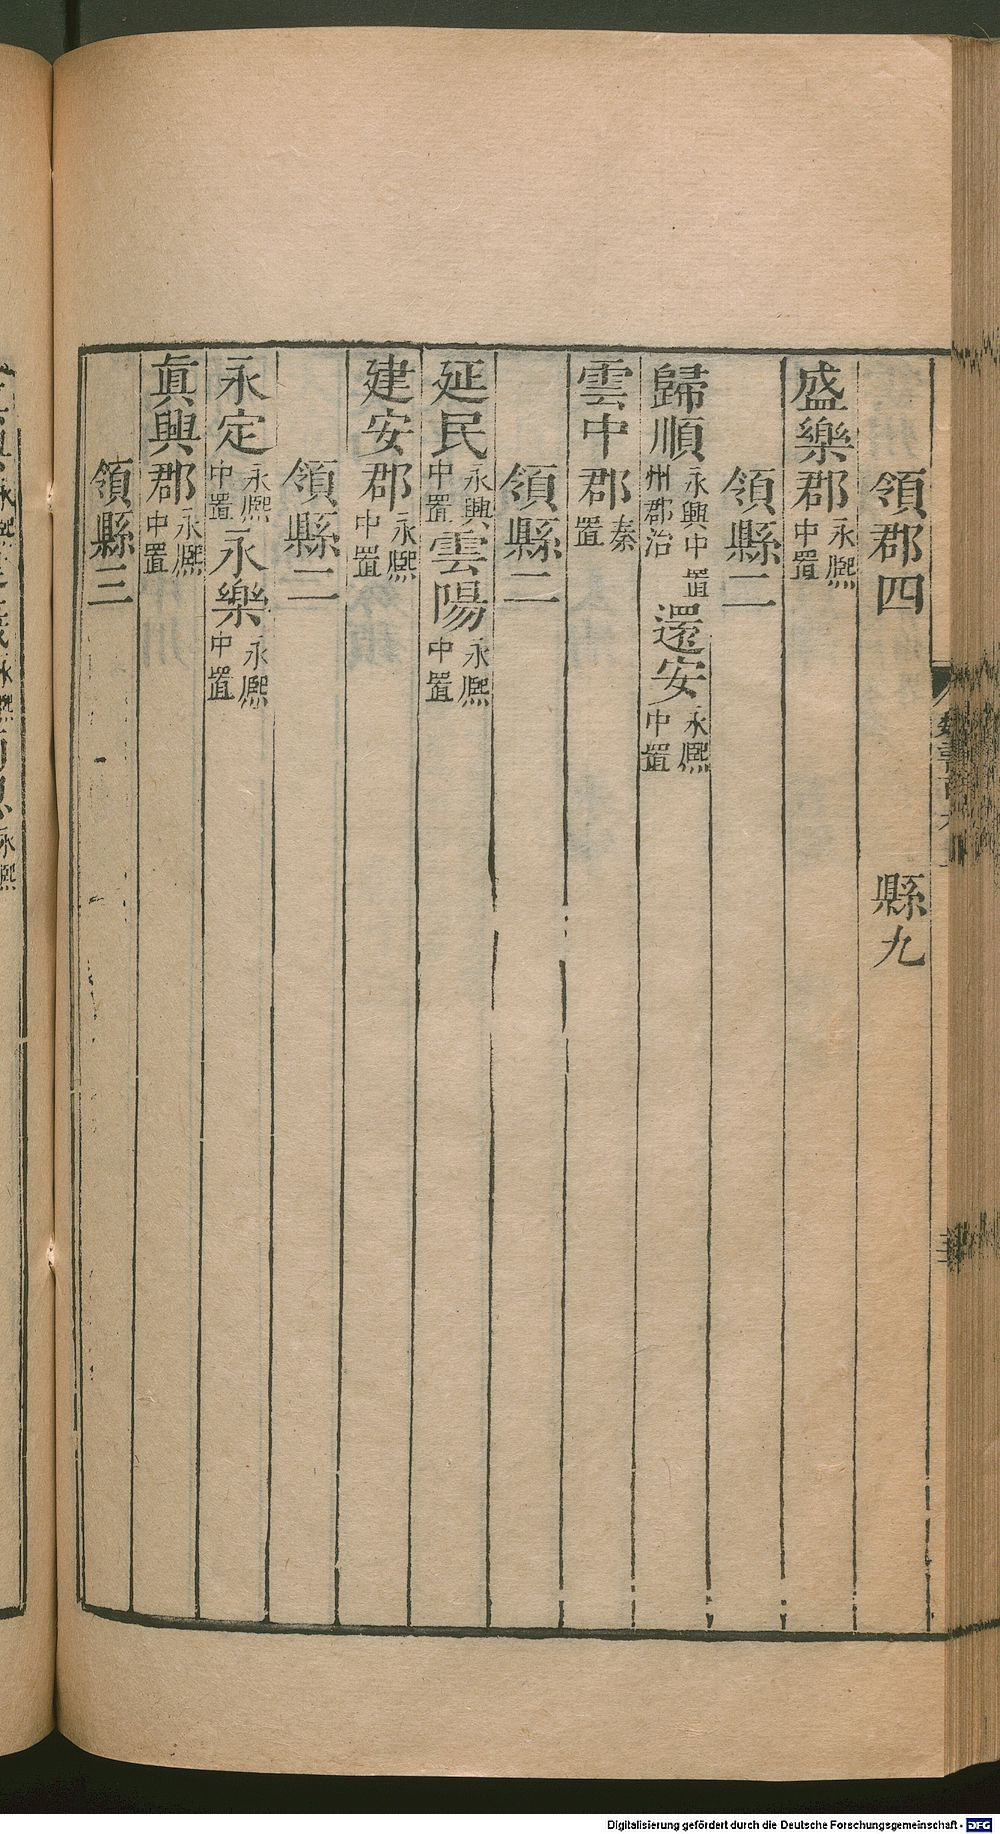 領郡四　縣九
盛樂郡永熙中置
領縣二
歸順永興中置州郡治還安永熙中置
雲中郡秦置
領縣二
延民永興中置雲陽永熙中置
建安郡永熙中置
領縣二
永定永熙中置永樂永熙中置
眞興郡永熙中置
領縣三
Digitalisierung gefördert durch die Deutsche Forschungsgemeinschaft - DFG